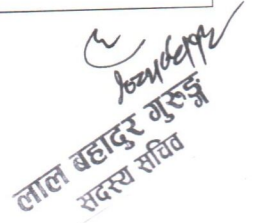 लाल बहादुर गुरुङ्ग
सदस्य सचिव